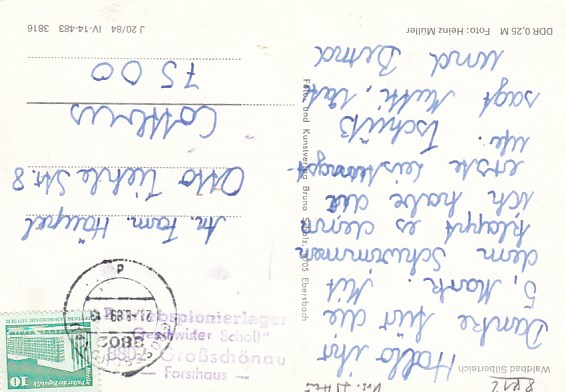 Waldbad Silberteich
Hallo ihr
Danke für die
5, Mark. Mit
dem Schwimmen
klappt es denn
ich habe die
erste
Tschüß
sagt Mutti, Vati
und Bernd
DDR 0,25 M Foto: Heinz Müller
Foto- und Kunstverlag Bruno Scholz, 8705 Ebersbach
10
21.-8.89.-13
8802
d
Betriebspionierlager
"Geschwister Scholl"
8802 Großschönau
— Forsthaus —
An Fam. Häupel
Otto Tiehle Str. 8
Cottbus
7500
J 20/84 IV-14-483 3816